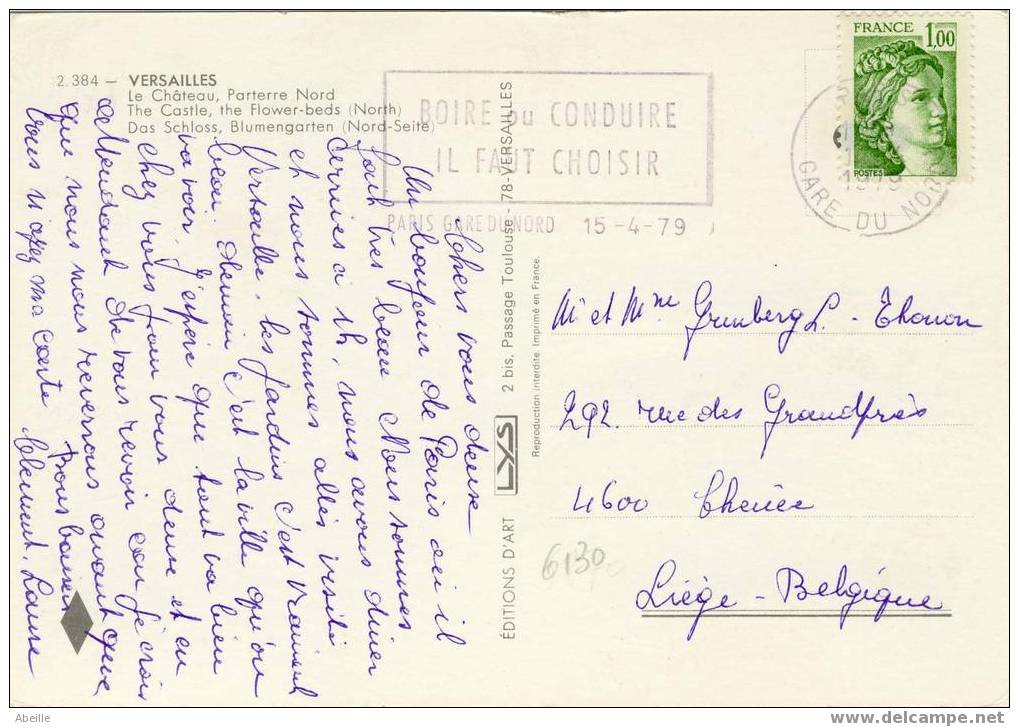 2.384 – VERSAILLES
Le Château, Parterre Nord
The Castle, the Flower-beds (North)
Das Schloss, Blumengarten (Nord-Seite)
BOIRE ou CONDUIRE
IL FAUT CHOISIR
PARIS GARE DU NORD 15-4-79
FRANCE
1,00
POSTES
1979
GARE DU NORD
Chers vous deux
Un bonjour de Paris où il
fait très beau Nous sommes
arrivés à 1h, nous avons diner
et nous sommes allés visité
Versaille. les jardins c'est vraiment
beau. demain c'est la ville qu'on
va voir. J'espère que tout va bien
chez vous pour vous deux et en
attendant de vous revoir car je crois
que nous nous reverrons avant que
vous n'ayez ma carte
Bons baisers
Clement, Laure
ÉDITIONS D'ART LYS 2 bis, Passage Toulouse - 78-VERSAILLES
Reproduction interdite. Imprimé en France.
Mr et Mme Grunberg L. - Thonon
292. rue des Grands Prés
4600 Chênée
Liège - Belgique
6130
Abeille
www.delcampe.net